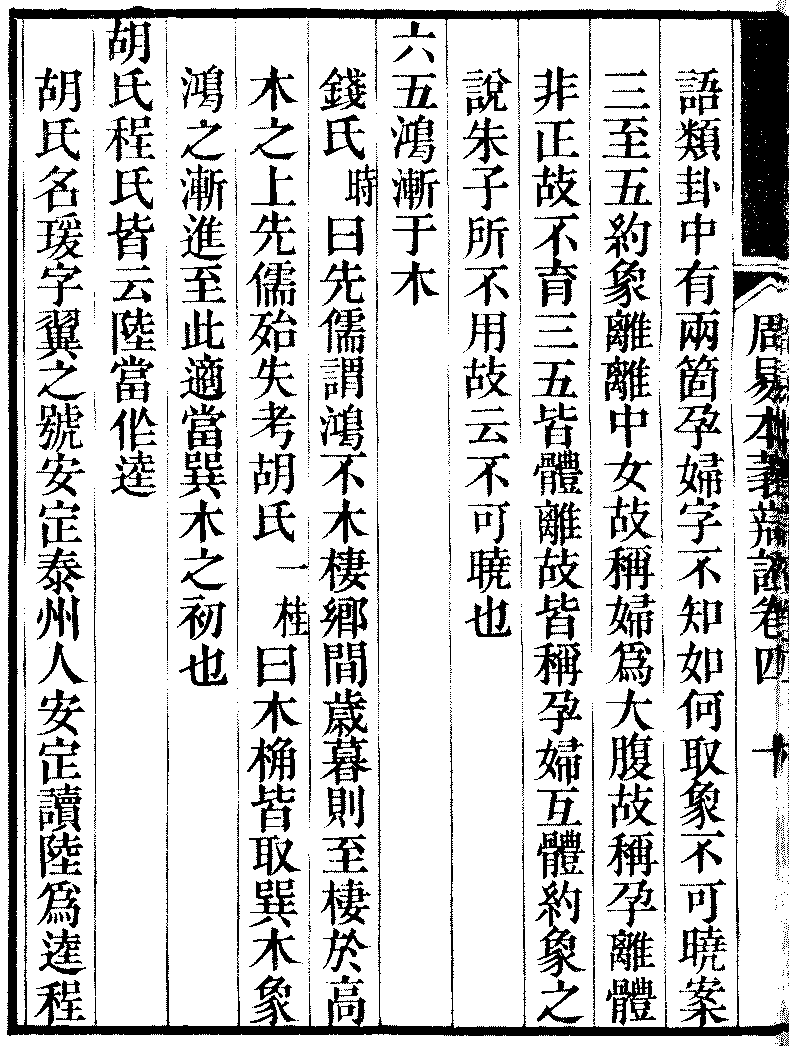 周易本義辨證卷四 十
語類卦中有兩箇孕婦字不知如何取象不可曉案
三至五約象離離中女故稱婦爲大腹故稱孕離體
非正故不育三五皆體離故皆稱孕婦互體約象之
說朱子所不用故云不可曉也
六五鴻漸于木
錢氏時曰先儒謂鴻不木棲鄉間歲暮則至棲於高
木之上先儒殆失考胡氏一桂曰木桷皆取巽木象
鴻之漸進至此適當巽木之初也
胡氏程氏皆云陸當作逵
胡氏名瑗字翼之號安定泰州人安定讀陸爲逵程